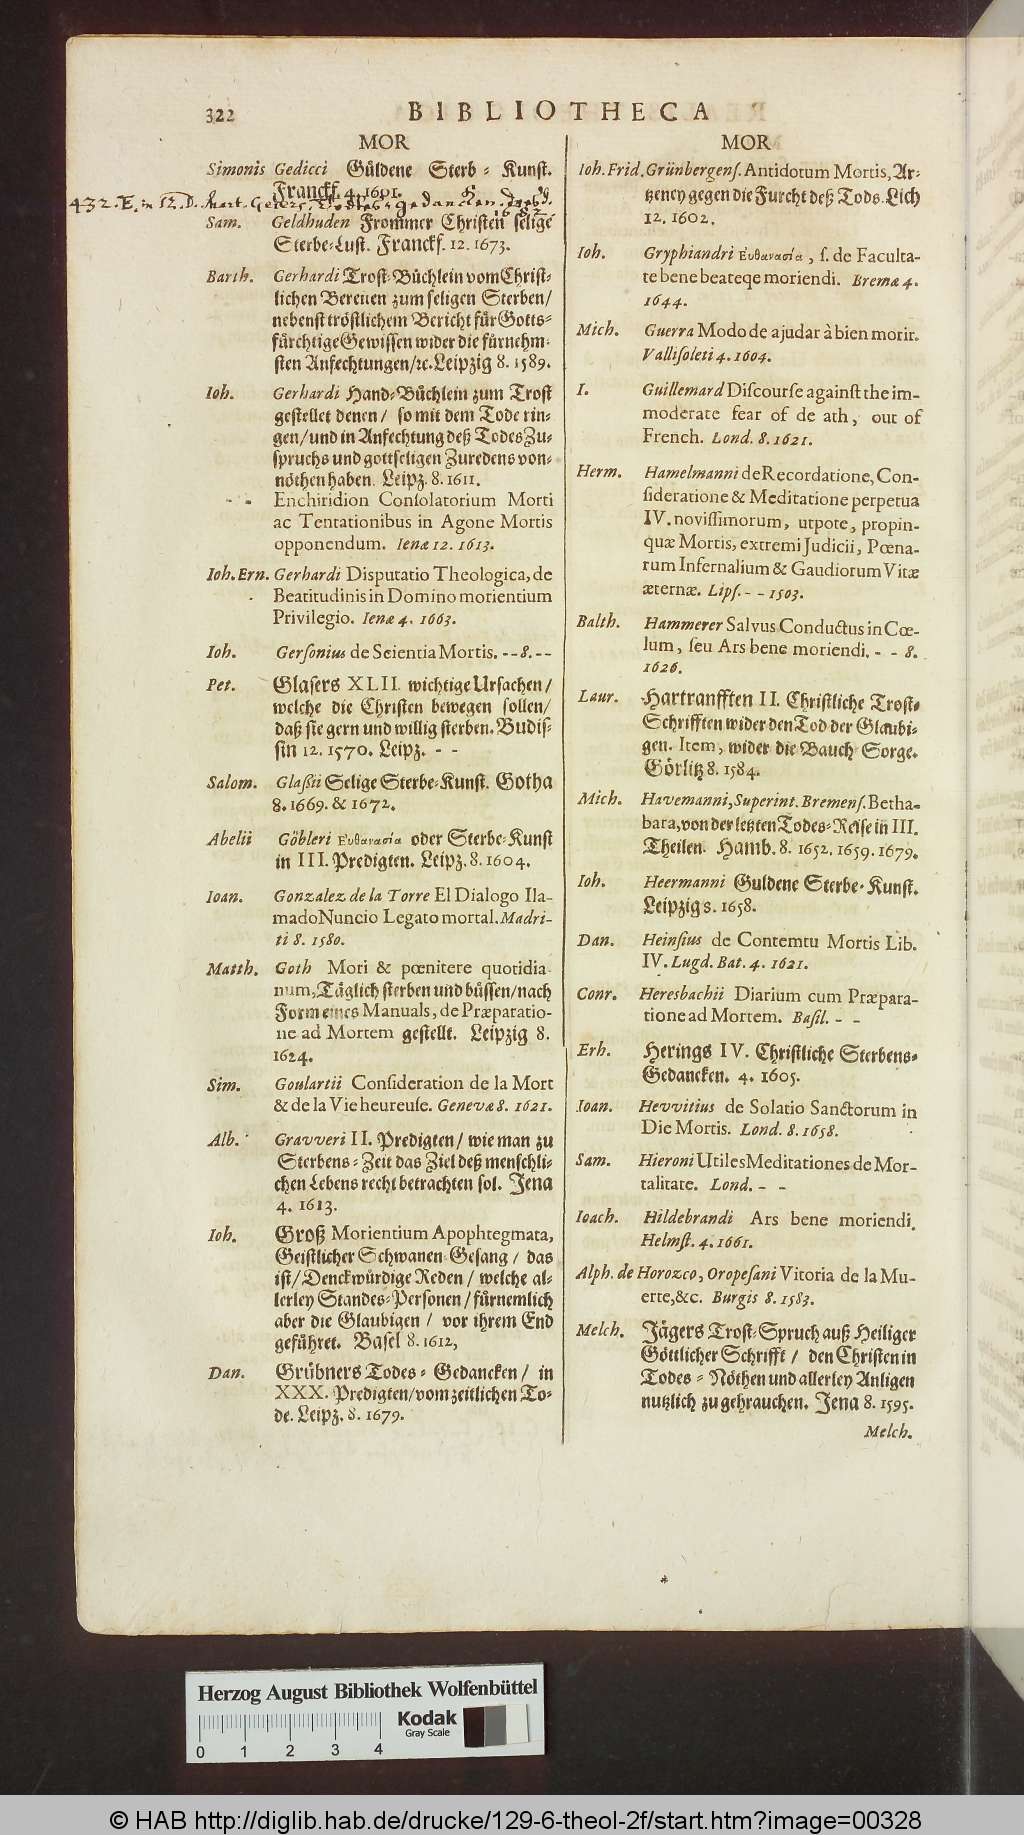 322 BIBLIOTHECA
MOR
Simonis Gedicci Güldene Sterb-Kunst.
Franckf. 4. 1601.
432. E. in 12. D. Mart. Geiers Todtes-gedancken.
Sam. Geldhuden Frommer Christen selige
Sterbe-Lust. Franckf. 12. 1673.
Barth. Gerhardi Trost-Büchlein vom Christ-
lichen Bereuen zum seligen Sterben/
nebenst tröstlichem Bericht für Gotts-
fürchtige Gewissen wider die fürnehm-
sten Anfechtungen/ꝛc. Leipzig 8. 1589.
Ioh. Gerhardi Hand-Büchlein zum Trost
gestellet denen/ so mit dem Tode rin-
gen/ und in Anfechtung deß Todes Zu-
spruchs und gottseligen Zuredens von-
nöthen haben. Leipz. 8. 1611.
- - Enchiridion Consolatorium Morti
ac Tentationibus in Agone Mortis
opponendum. Ienæ 12. 1613.
Ioh. Ern. Gerhardi Disputatio Theologica, de
Beatitudinis in Domino morientium
Privilegio. Ienæ 4. 1663.
Ioh. Gersonius de Scientia Mortis. - - 8. - -
Pet. Glasers XLII. wichtige Ursachen/
welche die Christen bewegen sollen/
daß sie gern und willig sterben. Budis-
sin 12. 1570. Leipz. - -
Salom. Glaßii Selige Sterbe-Kunst. Gotha
8. 1669. & 1672.
Abelii Göbleri Ευθανασία oder Sterbe-Kunst
in III. Predigten. Leipz. 8. 1604.
Ioan. Gonzalez de la Torre El Dialogo Ila-
mado Nuncio Legato mortal. Madri-
ti 8. 1580.
Matth. Goth Mori & pœnitere quotidia-
num, Täglich sterben und büssen/ nach
Form eines Manuals, de Præparatio-
ne ad Mortem gestellt. Leipzig 8.
1624.
Sim. Goulartii Consideration de la Mort
& de la Vie heureuse. Genevæ 8. 1621.
Alb. Gravveri II. Predigten/ wie man zu
Sterbens-Zeit das Ziel deß menschli-
chen Lebens recht betrachten sol. Jena
4. 1613.
Ioh. Groß Morientium Apophtegmata,
Geistlicher Schwanen-Gesang/ das
ist/ Denckwürdige Reden/ welche al-
lerley Standes-Personen/ fürnemlich
aber die Glaubigen/ vor ihrem End
geführet. Basel 8. 1612,
Dan. Grübners Todes-Gedancken/ in
XXX. Predigten/ vom zeitlichen To-
de. Leipz. 8. 1679.
MOR
Ioh. Frid. Grünbergens. Antidotum Mortis, Ar-
tzency gegen die Furcht deß Tods. Lich
12. 1602.
Ioh. Gryphiandri Ευθανασία, s. de Faculta-
te bene beateqe moriendi. Bremæ 4.
1644.
Mich. Guerra Modo de ajudar à bien morir.
Vallisoleti 4. 1604.
I. Guillemard Discourse against the im-
moderate fear of de ath, out of
French. Lond. 8. 1621.
Herm. Hamelmanni de Recordatione, Con-
sideratione & Meditatione perpetua
IV. novissimorum, utpote, propin-
quæ Mortis, extremi Judicii, Pœna-
rum Infernalium & Gaudiorum Vitæ
æternæ. Lips. - - 1503.
Balth. Hammerer Salvus Conductus in Cœ-
lum, seu Ars bene moriendi. - - 8.
1626.
Laur. Hartranfften II. Christliche Trost-
Schrifften wider den Tod der Glaubi-
gen. Item, wider die Bauch-Sorge.
Görlitz 8. 1584.
Mich. Havemanni, Superint. Bremens. Betha-
bara, von der letzten Todes-Reise in III.
Theilen. Hamb. 8. 1652. 1659. 1679.
Ioh. Heermanni Guldene Sterbe-Kunst.
Leipzig 8. 1658.
Dan. Heinsius de Contemtu Mortis Lib.
IV. Lugd. Bat. 4. 1621.
Conr. Heresbachii Diarium cum Præpara-
tione ad Mortem. Basil. - -
Erh. Herings IV. Christliche Sterbens-
Gedancken. 4. 1605.
Ioan. Hevvitius de Solatio Sanctorum in
Die Mortis. Lond. 8. 1658.
Sam. Hieroni Utiles Meditationes de Mor-
talitate. Lond. - -
Ioach. Hildebrandi Ars bene moriendi.
Helmst. 4. 1661.
Alph. de Horozco, Oropesani Vitoria de la Mu-
erte, &c. Burgis 8. 1583.
Melch. Jägers Trost-Spruch auß Heiliger
Göttlicher Schrifft/ den Christen in
Todes-Nöthen und allerley Anligen
nutzlich zu gebrauchen. Jena 8. 1595.
Melch.
Herzog August Bibliothek Wolfenbüttel
Kodak
Gray Scale
0 1 2 3 4
© HAB http://diglib.hab.de/drucke/129-6-theol-2f/start.htm?image=00328